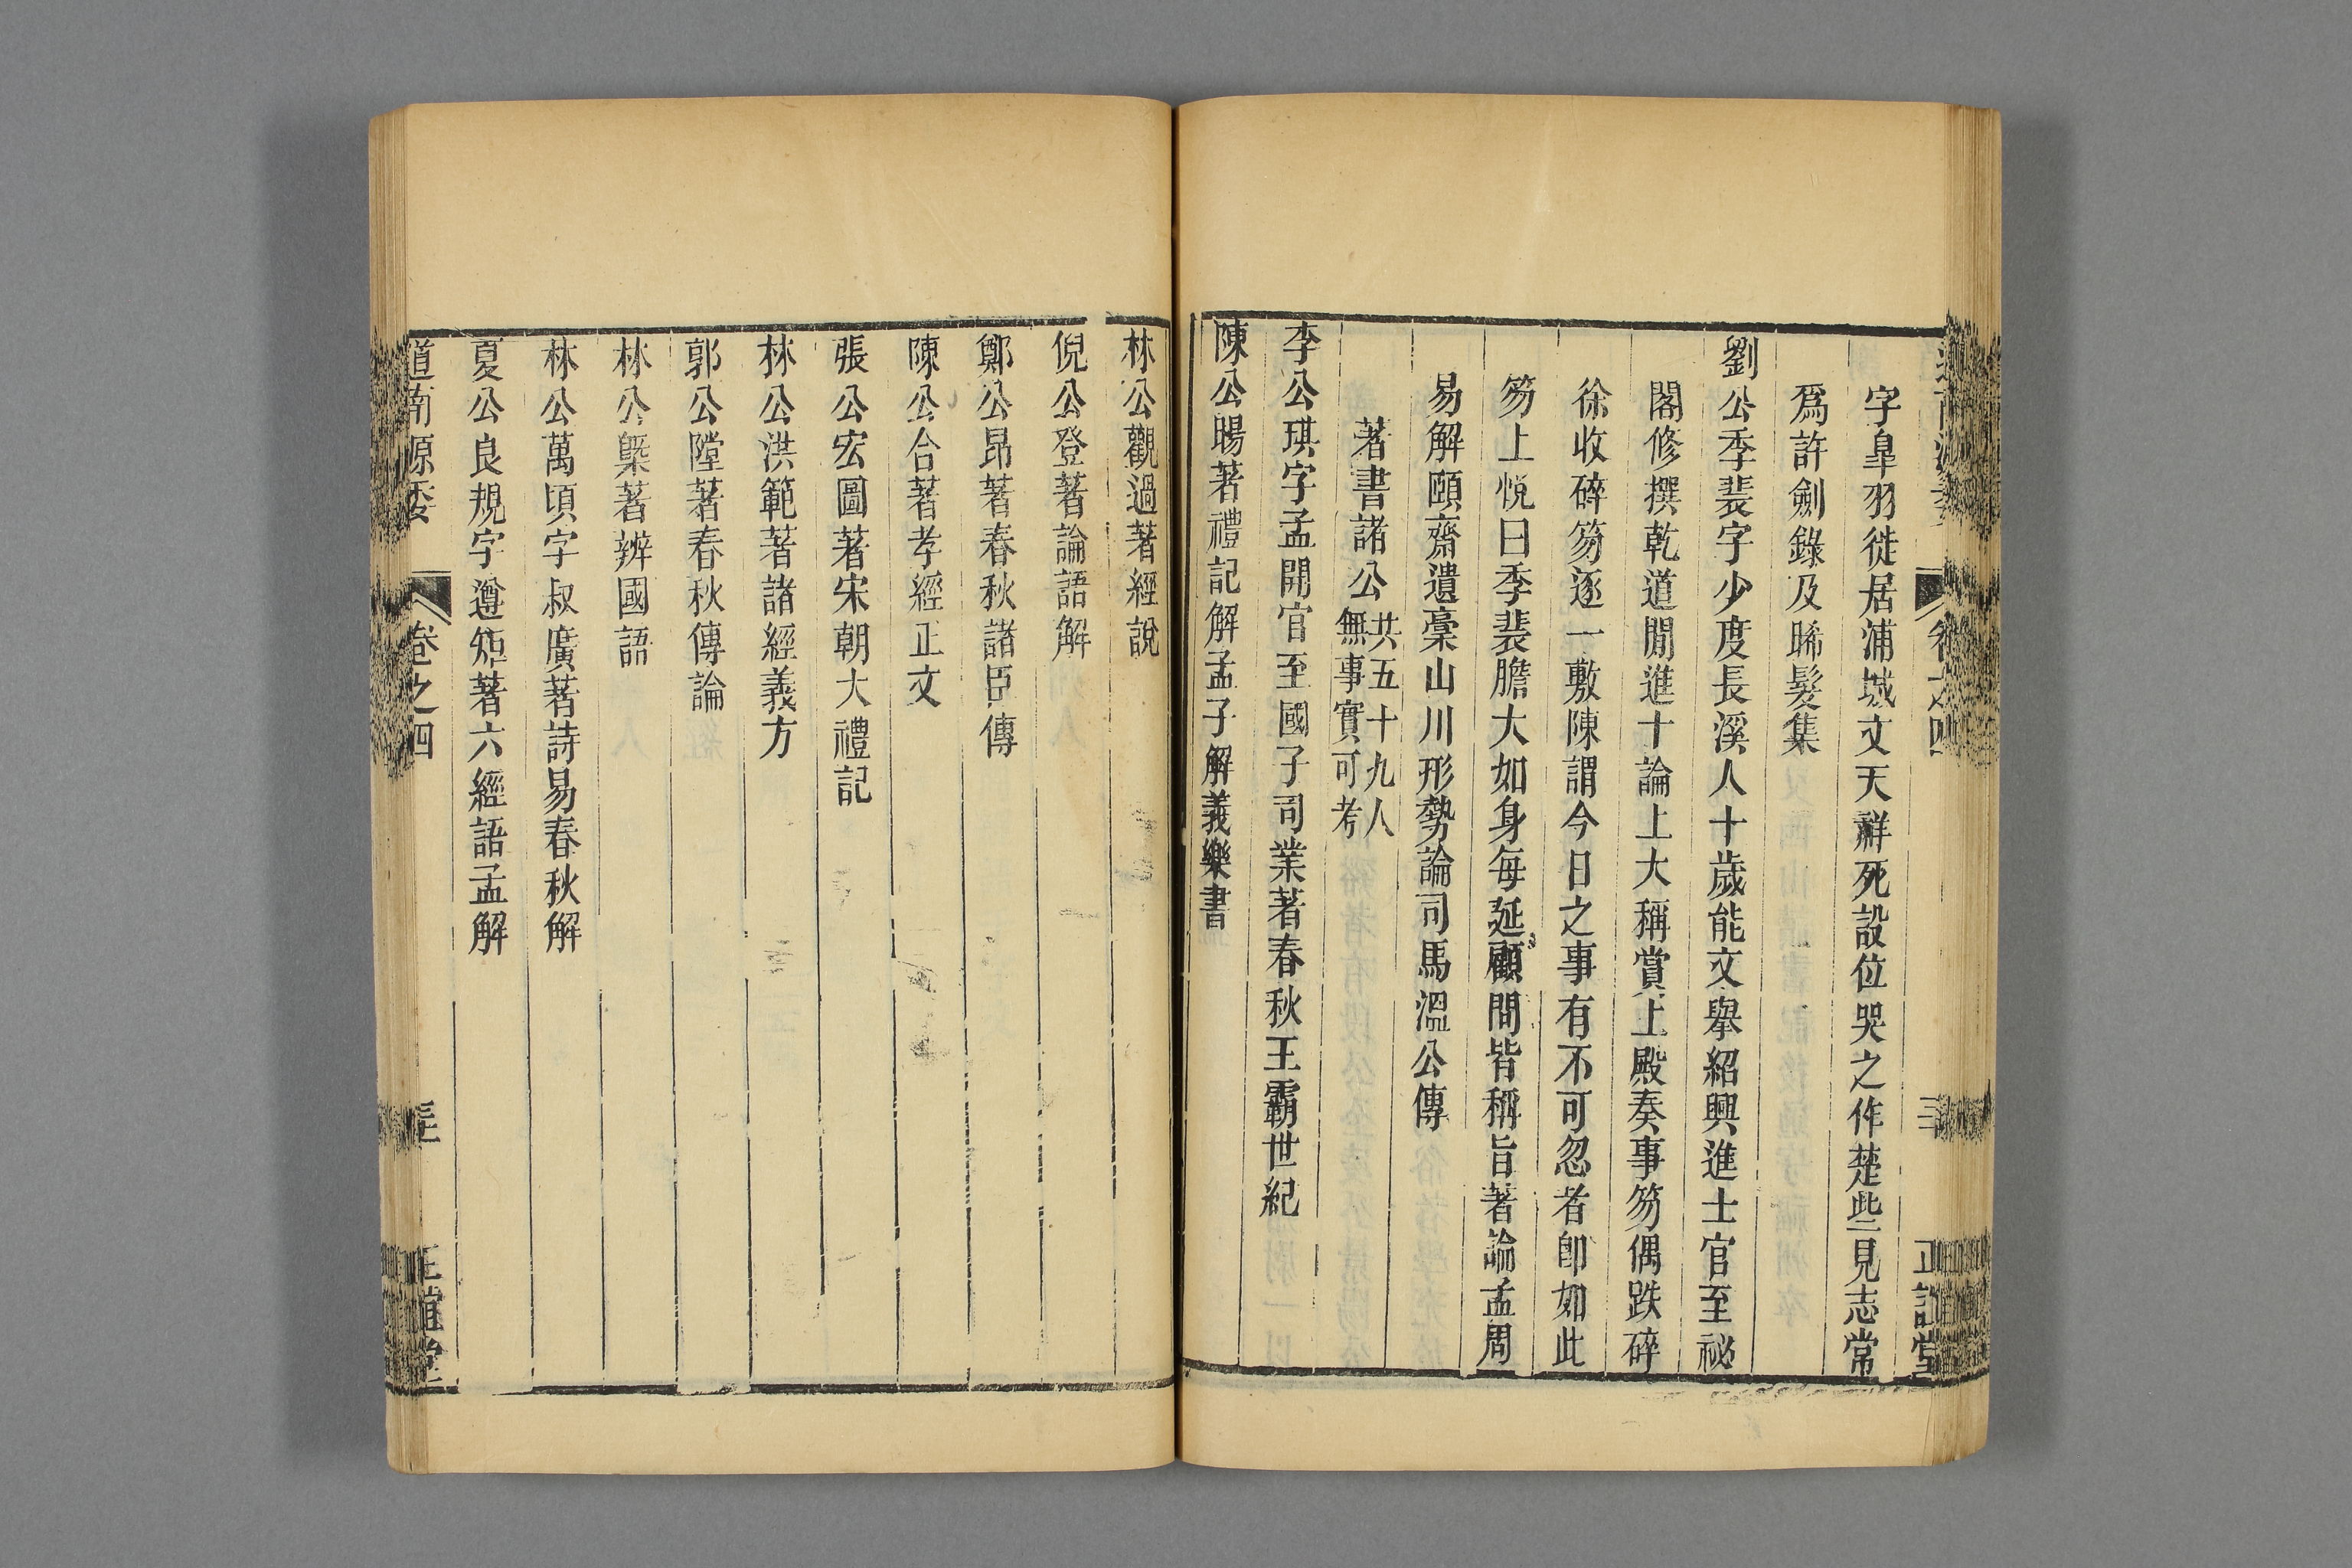 字臯羽徙居浦城文天祥死設位哭之作楚些見志常
爲許劍錄及晞髮集
劉公季裴字少度長溪人十歲能文舉紹興進士官至祕
閣修撰乾道間進十論上大稱賞上殿奏事笏偶跌碎
徐收碎笏逐一敷陳謂今日之事有不可忽者卽如此
笏上悅曰季裴膽大如身每延顧問皆稱旨著論孟周
易解頤齋遺稾山川形勢論司馬溫公傳
著書諸公共五十九人無事實可考
李公琪字孟開官至國子司業著春秋王霸世紀
陳公暘著禮記解孟子解義樂書
林公觀過著經說
倪公登著論語解
鄭公昂著春秋諸臣傳
陳公合著孝經正文
張公宏圖著宋朝大禮記
林公洪範著諸經義方
郭公陞著春秋傳論
林公槩著辨國語
林公萬頃字叔廣著詩易春秋解
夏公良規字遵矩著六經語孟解
道南源委 卷之四 正誼堂